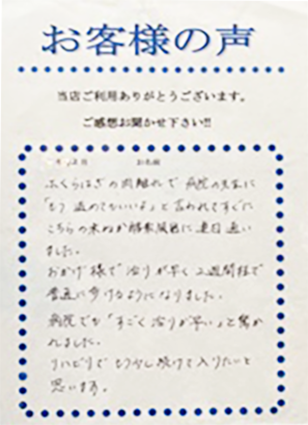 お客様の声
当店ご利用ありがとうございます。
ご感想お聞かせ下さい!!
月 日 お名前
ふくらはぎの肉離れで病院の先生に
「もう温めてもいいよ」と言われてすぐに
こちらの米ぬか酵素風呂に連日通い
ました。
おかげ様で治りが早く2週間程で
普通に歩けるようになりました。
病院でも「すごく治りが早い」と驚か
れました。
リハビリでもう少し続けて入りたいと
思います。